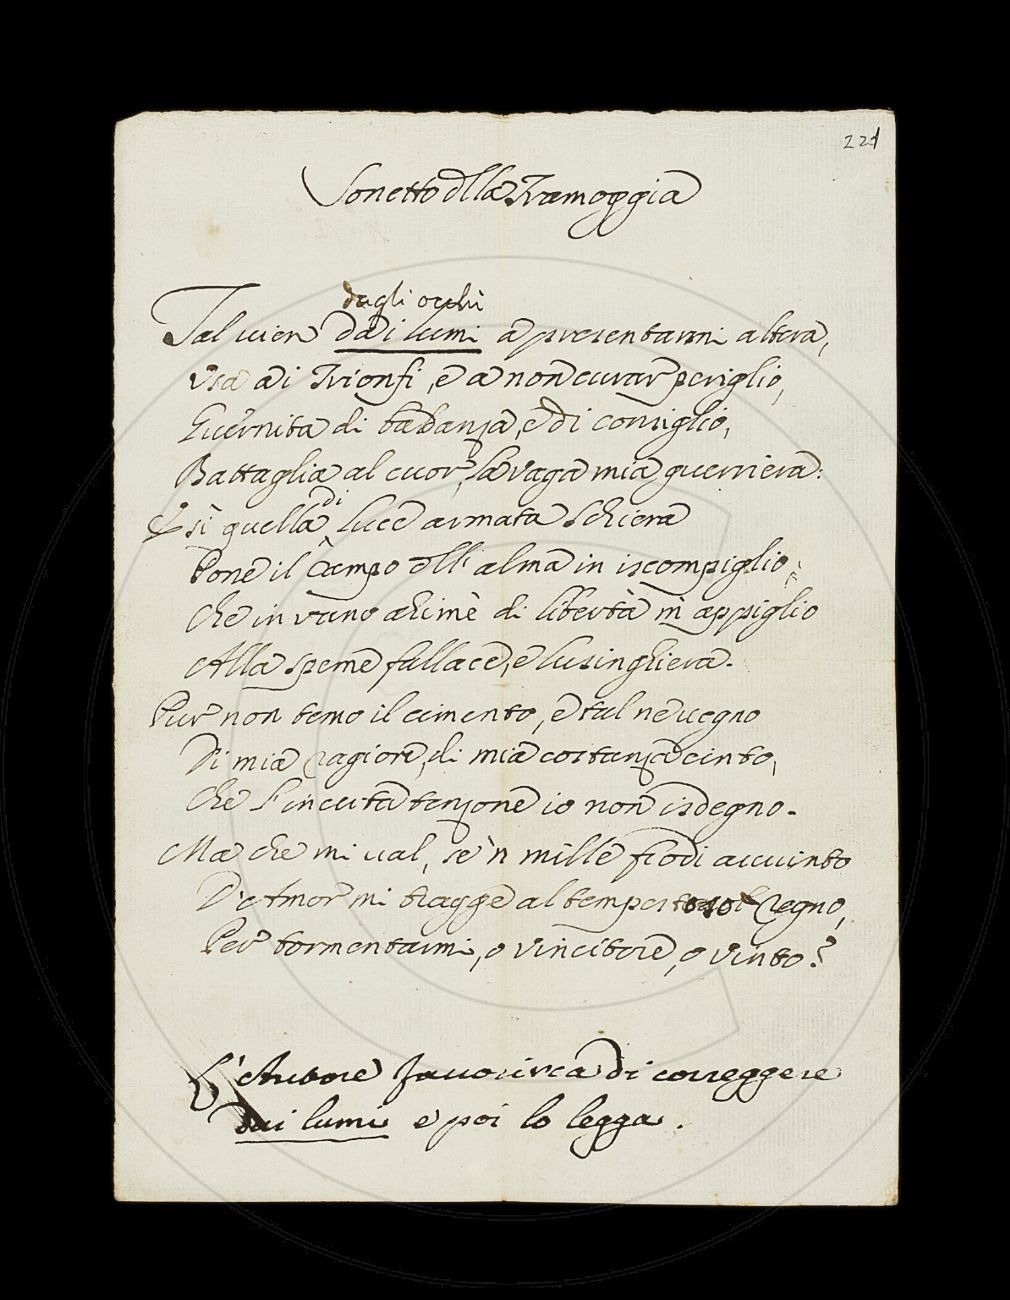 221
Sonetto dlla Tramoggia
dagli occhi
Tal vien dai lumi a presentarmi altera,
Usa ai Trionfi, e a non curar periglio,
Guernita di baldanza, e di consiglio,
Battaglia al cuor, la vaga mia guerriera:
E sì quella di luce armata schiera
Pone il Campo dll'alma in iscompiglio,
Che in vano ahimè di libertà m'appiglio
Alla speme fallace, e lusinghiera.
Pur non temo il cimento, e tal ne vegno
Di mia ragione, di mia costanza cinto,
Che l'incerta tenzone io non isdegno.
Ma che mi val, se 'n mille frodi avvinto
D'Amor mi tragge al tempestoso Regno,
Per tormentarmi, o vincitore, o vinto?
L'Autore favorirca di correggere
dai lumi e poi lo legga.